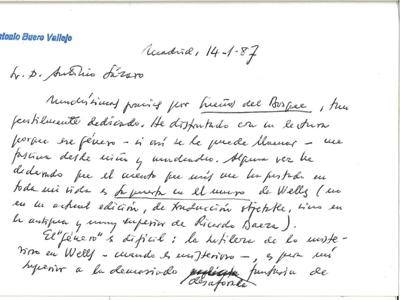 Antonio Buero Vallejo
Madrid, 14-1-87
Sr. D. Antonio Lázaro
Muchísimas gracias por Sueños del Bosque, tan
gentilmente dedicado. He disfrutado con su lectura
porque ese género - si así se le puede llamar - me
fascina desde niño y muchacho. Alguna vez he
declarado que el cuento que más me ha gustado en
toda mi vida es La puerta en el muro de Wells (no
en su actual edición, de traducción objetable, sino en
la antigua y muy superior de Ricardo Baeza).
El "género" es difícil: la sutileza de lo miste-
rioso en Wells - cuando es misterioso -, es para mí
superior a la demasiado fantasía de
desaforada